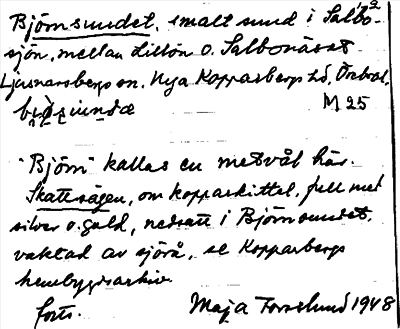 Björnsundet, smalt sund i Salbo-
sjön, mellan Lillön o. Salbonäset
Ljusnarsbergs sn. Nya Kopparbergs hd, Örebro l.
M 25
"Björn" kallas en metvål här.
Skattsägen, om kopparkittel, full med
silver o. guld, nedsatt i Björnsundet,
vaktad av sjörå, se Kopparbergs
hembygdsarkiv.
forts. Maja Forsslund 1948